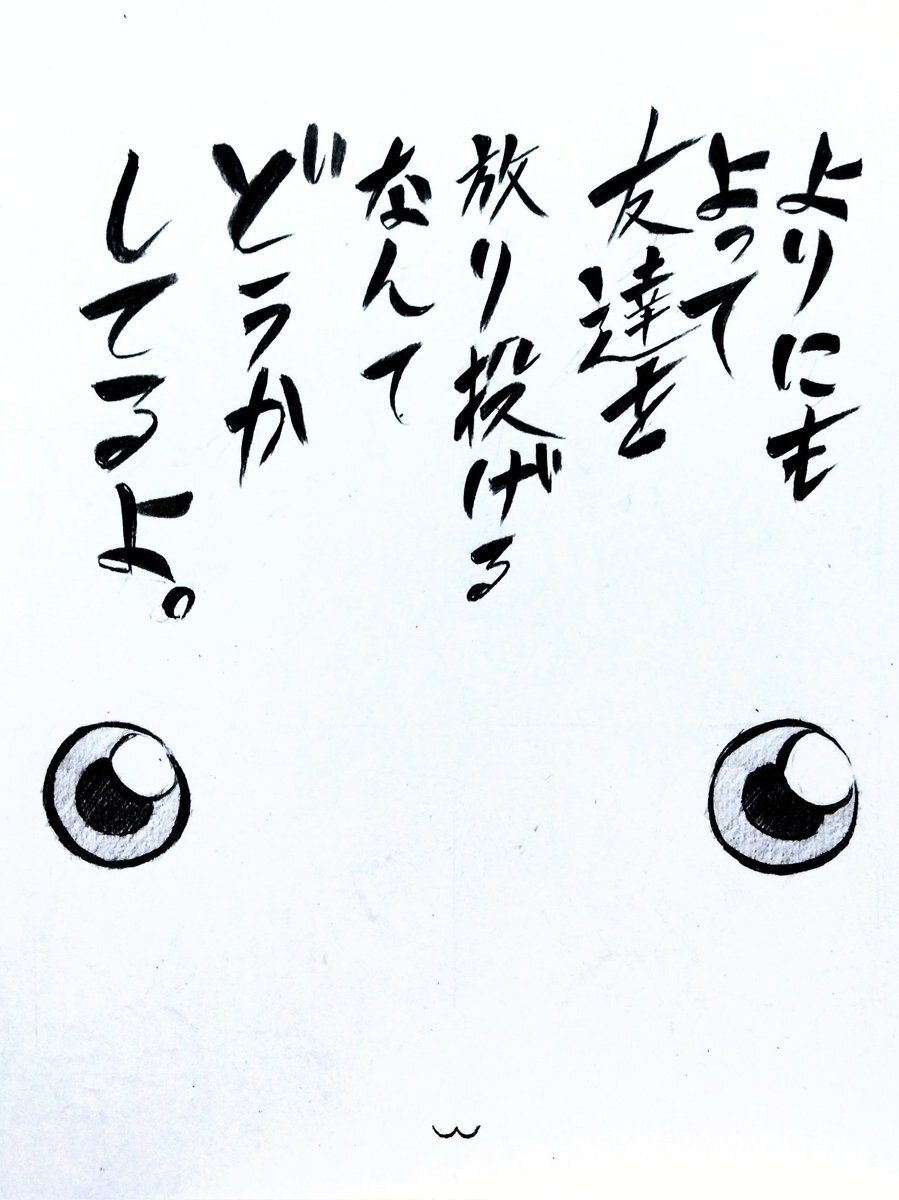 よりにも
よって
友達を
放り投げる
なんて
どうか
してるよ。